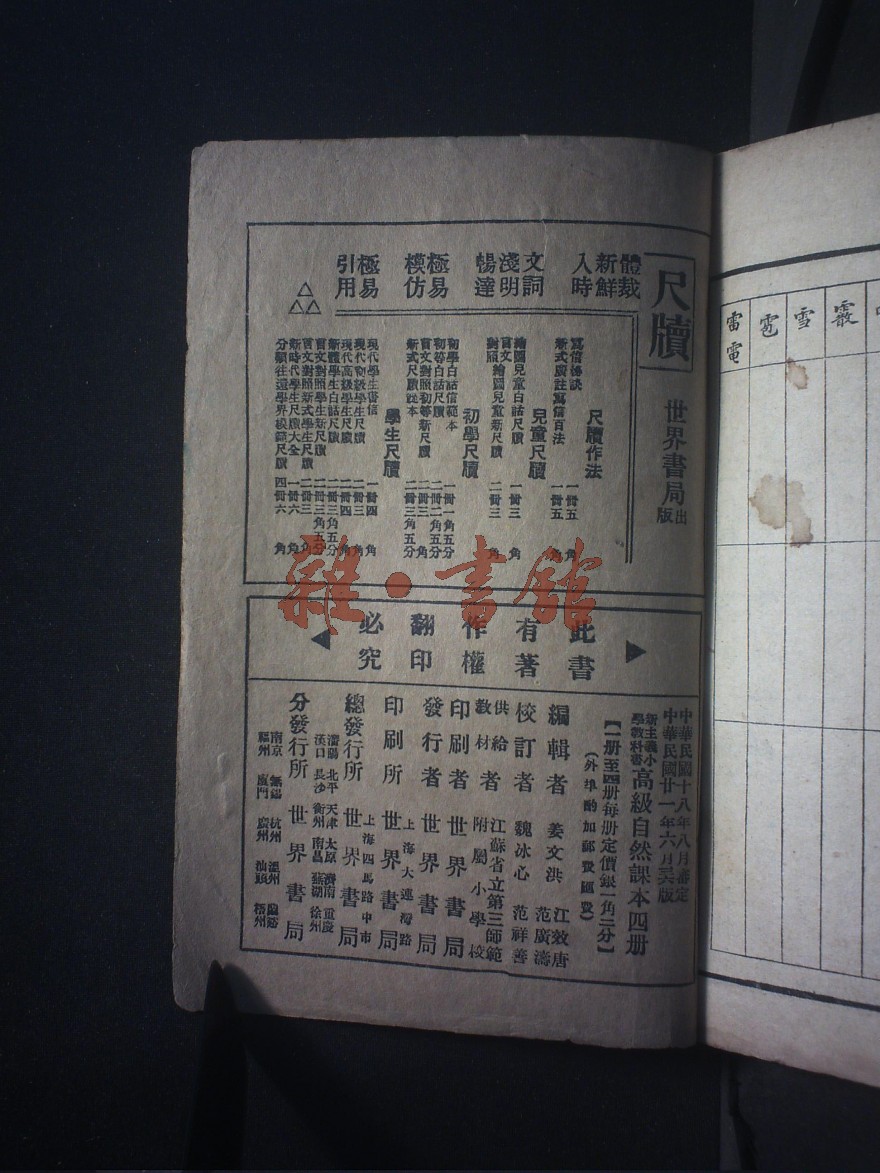 尺牘
世界書局出版
體裁新鮮入時
文詞淺明暢達
極易模仿
極易引用
尺牘作法
寫信祕訣 一冊五角
新式廣註寫信百法 一冊五
兒童尺牘
繪圖兒童白話尺牘 一冊三角
言文對照繪圖兒童新尺牘 二冊三角
初學尺牘
初學白話信範本 一冊一角五分
初等白話尺牘 二冊二角五分
言文對照初等新尺牘 二冊三角
新式尺牘課本 二冊三角五分
學生尺牘
現代學生書信 一冊四角
現代初級學生尺牘 二冊三角
現代高級學生尺牘 二冊四角
新體學生白話尺牘 二冊三角五分
言文對照學生新尺牘 二冊三角五分
言文對照新式學生尺牘 二冊三角
新時代學生尺牘大全 一冊六角
分類往還學界模範尺牘 四冊六角
此書有著作權翻印必究
中華民國十八年八月審定
中華民國廿一年六月 版
新主義小學教科書高級自然課本四册
【一册至四册每册定價銀一角三分】
(外埠酌加郵費匯費)
編輯者 姜文洪 江效唐 范廣濤
校訂者 魏冰心 范祥善
供給教材者 江蘇省立第三師範附屬小學校
印刷者 世界書局
發行者 世界書局
印刷所 上海大連灣路 世界書局
總發行所 上海四馬路中市 世界書局
分發行所 瀋陽 北平 天津 太原 濟南 重慶 漢口 長沙 衡州 南昌 蕪湖 徐州 世界書局 南京 無錫 杭州 溫州 福州 廈門 廣州 汕頭 梧州
叢
雪
雹
雷電
雜·書館